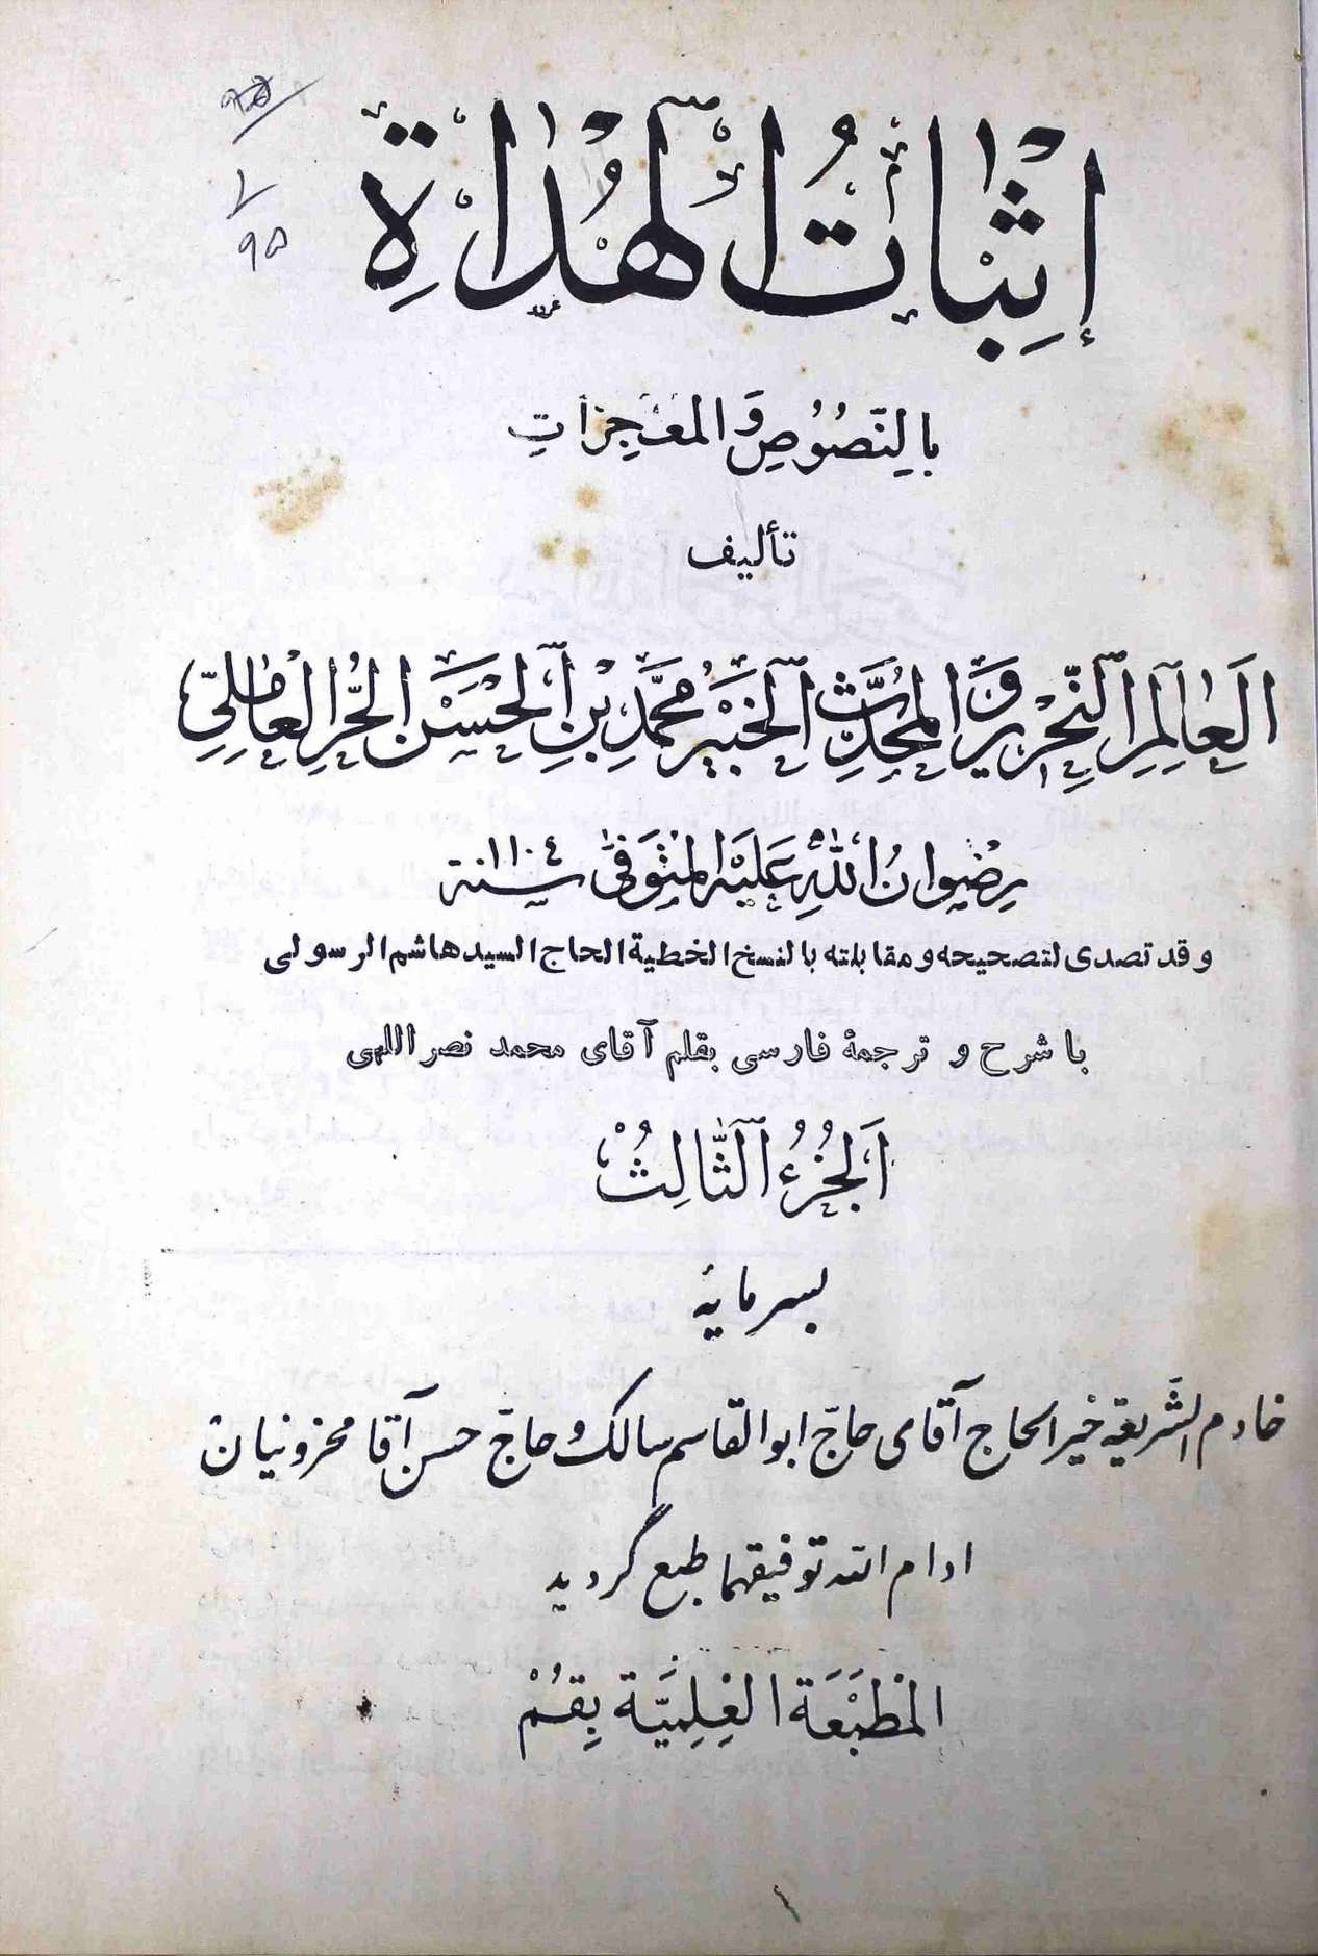 إِثْبَاتُ الْهُدَاةِ
بِالنُّصُوصِ وَالْمُعْجِزَاتِ
تأليف
اَلْعَالِمِ النِّحْرِيرِ وَالْمُحَدِّثِ الْخَبِيرِ مُحَمَّدِ بْنِ الْحَسَنِ الْحُرِّ الْعَامِلِيِّ
رِضْوَانُ اللّٰهِ عَلَيْهِ الْمُتَوَفّٰى سنة ١١٠٤
وقد تصدى لتصحيحه ومقابلته بالنسخ الخطية الحاج السيد هاشم الرسولى
با شرح و ترجمۀ فارسى بقلم آقاى محمد نصر اللهى
اَلْجُزْءُ الثَّالِثُ
بسرمایۀ
خادم الشّریعه خیر الحاج آقای حاجّ ابوالقاسم سالک و حاجّ حسن آقا مخزونیان
ادام الله توفیقهما طبع گردید
الْمَطْبَعَة الْعِلْمِيَّة بِقُمْ
٩٥